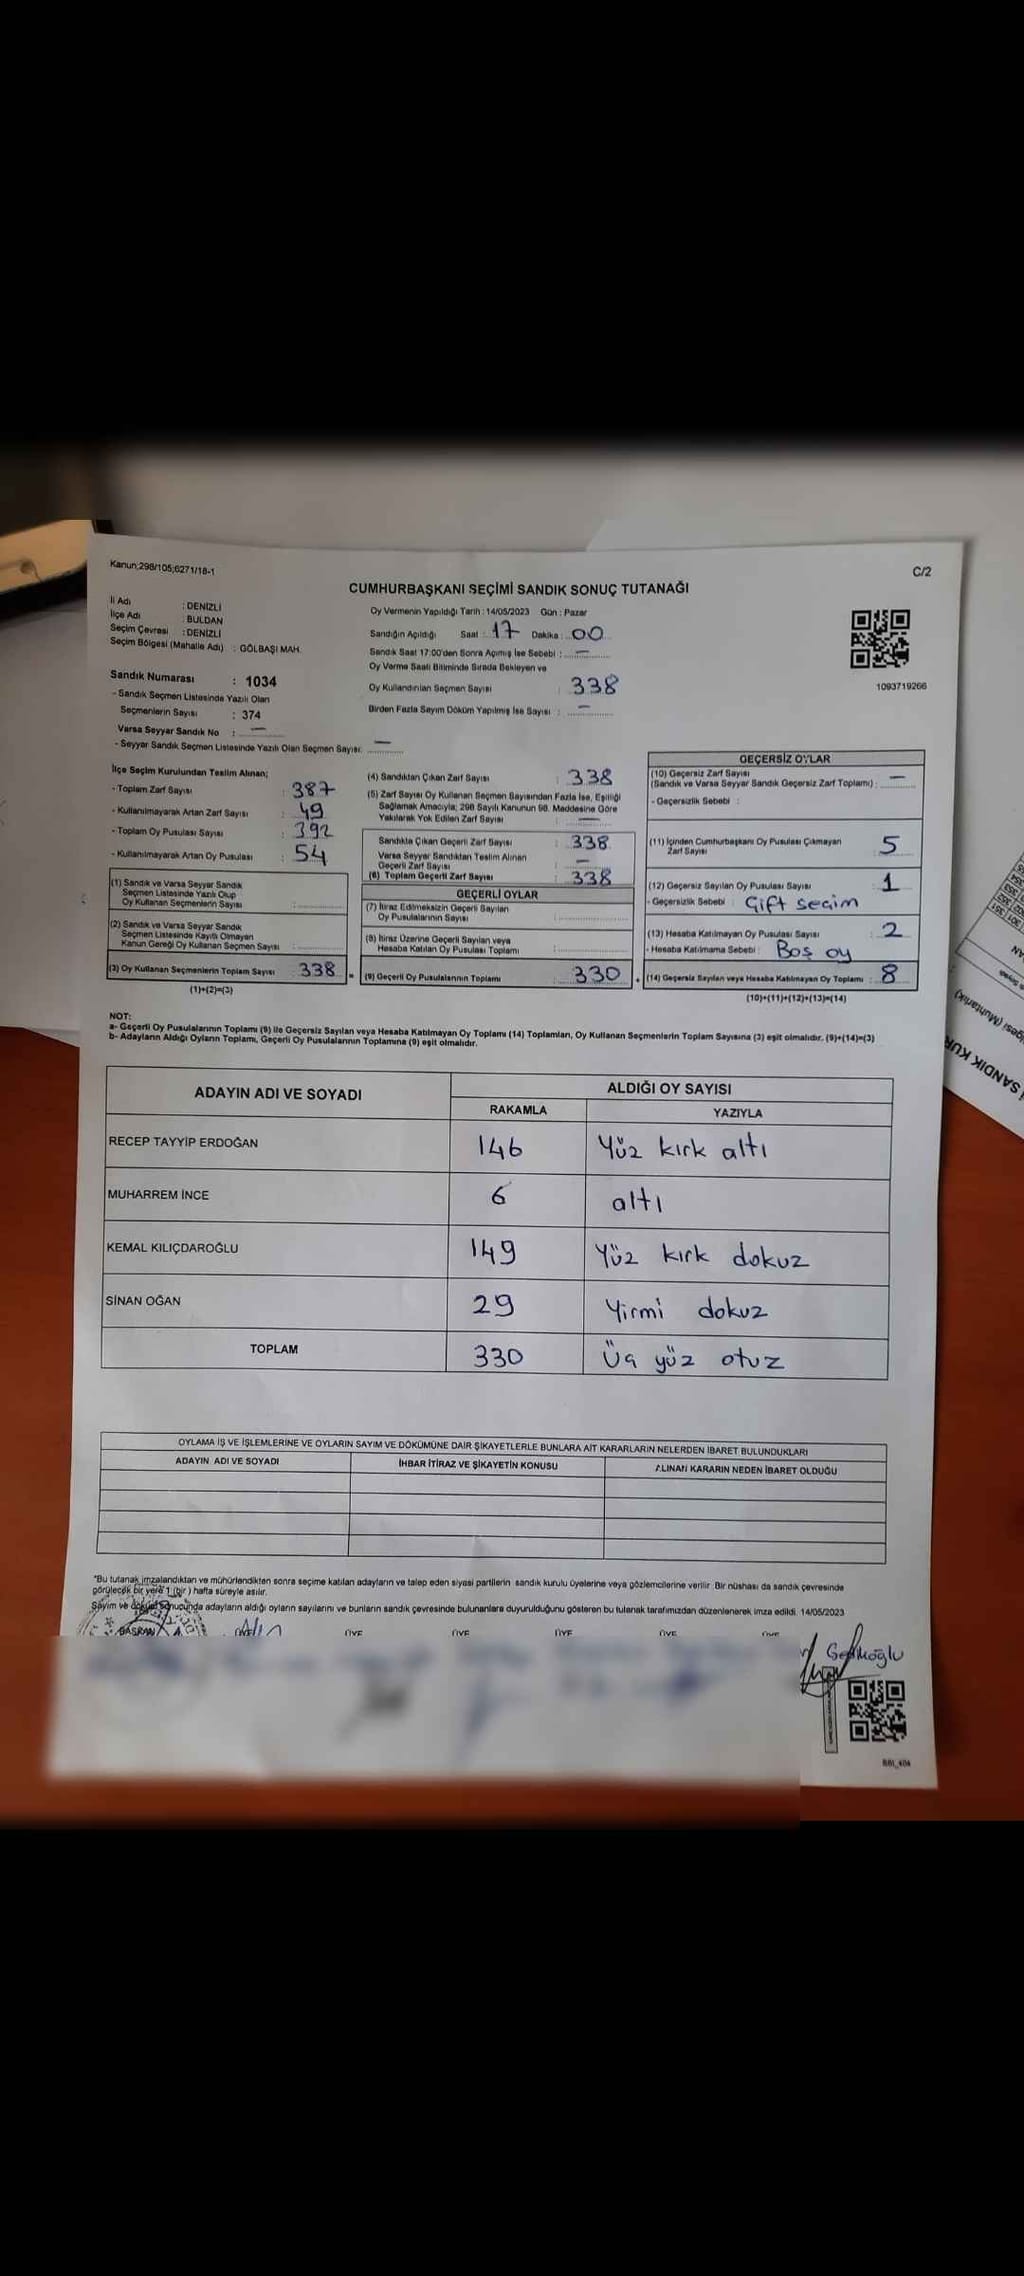 Kanun;298/105;6271/18-1
C/2
CUMHURBAŞKANI SEÇİMİ SANDIK SONUÇ TUTANAĞI
İl Adı : DENİZLİ
İlçe Adı : BULDAN
Seçim Çevresi : DENİZLİ
Seçim Bölgesi (Mahalle Adı) : GÖLBAŞI MAH.
Sandık Numarası : 1034
- Sandık Seçmen Listesinde Yazılı Olan
Seçmenlerin Sayısı : 374
Varsa Seyyar Sandık No : —
- Seyyar Sandık Seçmen Listesinde Yazılı Olan Seçmen Sayısı: —
Oy Vermenin Yapıldığı Tarih : 14/05/2023 Gün : Pazar
Sandığın Açıldığı Saat : 17 Dakika : 00
Sandık Saat 17:00'den Sonra Açımış İse Sebebi : —
Oy Verme Saati Bitiminde Sırada Bekleyen ve
Oy Kullandırılan Seçmen Sayısı : 338
Birden Fazla Sayım Döküm Yapılmış İse Sayısı : —
1093719266
İlçe Seçim Kurulundan Teslim Alınan;
- Toplam Zarf Sayısı : 387
- Kullanılmayarak Artan Zarf Sayısı : 49
- Toplam Oy Pusulası Sayısı : 392
- Kullanılmayarak Artan Oy Pusulası : 54
(1) Sandık ve Varsa Seyyar Sandık
Seçmen Listesinde Yazılı Olup
Oy Kullanan Seçmenlerin Sayısı :
(2) Sandık ve Varsa Seyyar Sandık
Seçmen Listesinde Kayıtlı Olmayan
Kanun Gereği Oy Kullanan Seçmen Sayısı :
(3) Oy Kullanan Seçmenlerin Toplam Sayısı 338 =
(1)+(2)=(3)
(4) Sandıktan Çıkan Zarf Sayısı : 338
(5) Zarf Sayısı Oy Kullanan Seçmen Sayısından Fazla İse, Eşitliği
Sağlamak Amacıyla; 298 Sayılı Kanunun 98. Maddesine Göre
Yakılarak Yok Edilen Zarf Sayısı : —
Sandıkta Çıkan Geçerli Zarf Sayısı : 338
Varsa Seyyar Sandıktan Teslim Alınan
Geçerli Zarf Sayısı : —
(6) Toplam Geçerli Zarf Sayısı : 338
GEÇERLİ OYLAR
(7) İtiraz Edilmeksizin Geçerli Sayılan
Oy Pusulalarının Sayısı :
(8) İtiraz Üzerine Geçerli Sayılan veya
Hesaba Katılan Oy Pusulası Toplamı :
(9) Geçerli Oy Pusulalarının Toplamı : 330 +
GEÇERSİZ OYLAR
(10) Geçersiz Zarf Sayısı
(Sandık ve Varsa Seyyar Sandık Geçersiz Zarf Toplamı) : —
- Geçersizlik Sebebi :
(11) İçinden Cumhurbaşkanı Oy Pusulası Çıkmayan
Zarf Sayısı : 5
(12) Geçersiz Sayılan Oy Pusulası Sayısı : 1
- Geçersizlik Sebebi : Çift seçim
(13) Hesaba Katılmayan Oy Pusulası Sayısı : 2
- Hesaba Katılmama Sebebi : Boş oy
(14) Geçersiz Sayılan veya Hesaba Katılmayan Oy Toplamı : 8
(10)+(11)+(12)+(13)=(14)
NOT:
a- Geçerli Oy Pusulalarının Toplamı (9) ile Geçersiz Sayılan veya Hesaba Katılmayan Oy Toplamı (14) Toplamları, Oy Kullanan Seçmenlerin Toplam Sayısına (3) eşit olmalıdır. (9)+(14)=(3)
b- Adayların Aldığı Oyların Toplamı, Geçerli Oy Pusulalarının Toplamına (9) eşit olmalıdır.
ADAYIN ADI VE SOYADI ALDIĞI OY SAYISI
RAKAMLA YAZIYLA
RECEP TAYYİP ERDOĞAN 146 Yüz kırk altı
MUHARREM İNCE 6 altı
KEMAL KILIÇDAROĞLU 149 Yüz kırk dokuz
SİNAN OĞAN 29 Yirmi dokuz
TOPLAM 330 Üç yüz otuz
OYLAMA İŞ VE İŞLEMLERİNE VE OYLARIN SAYIM VE DÖKÜMÜNE DAİR ŞİKAYETLERLE BUNLARA AİT KARARLARIN NELERDEN İBARET BULUNDUKLARI
ADAYIN ADI VE SOYADI İHBAR İTİRAZ VE ŞİKAYETİN KONUSU ALINAN KARARIN NEDEN İBARET OLDUĞU
"Bu tutanak imzalandıktan ve mühürlendikten sonra seçime katılan adayların ve talep eden siyasi partilerin sandık kurulu üyelerine veya gözlemcilerine verilir. Bir nüshası da sandık çevresinde
görülecek bir yere 1 (bir) hafta süreyle asılır.
Sayım ve döküm sonucunda adayların aldığı oyların sayılarını ve bunların sandık çevresinde bulunanlara duyurulduğunu gösteren bu tutanak tarafımızdan düzenlenerek imza edildi. 14/05/2023
BAŞKAN ÜYE ÜYE ÜYE ÜYE ÜYE